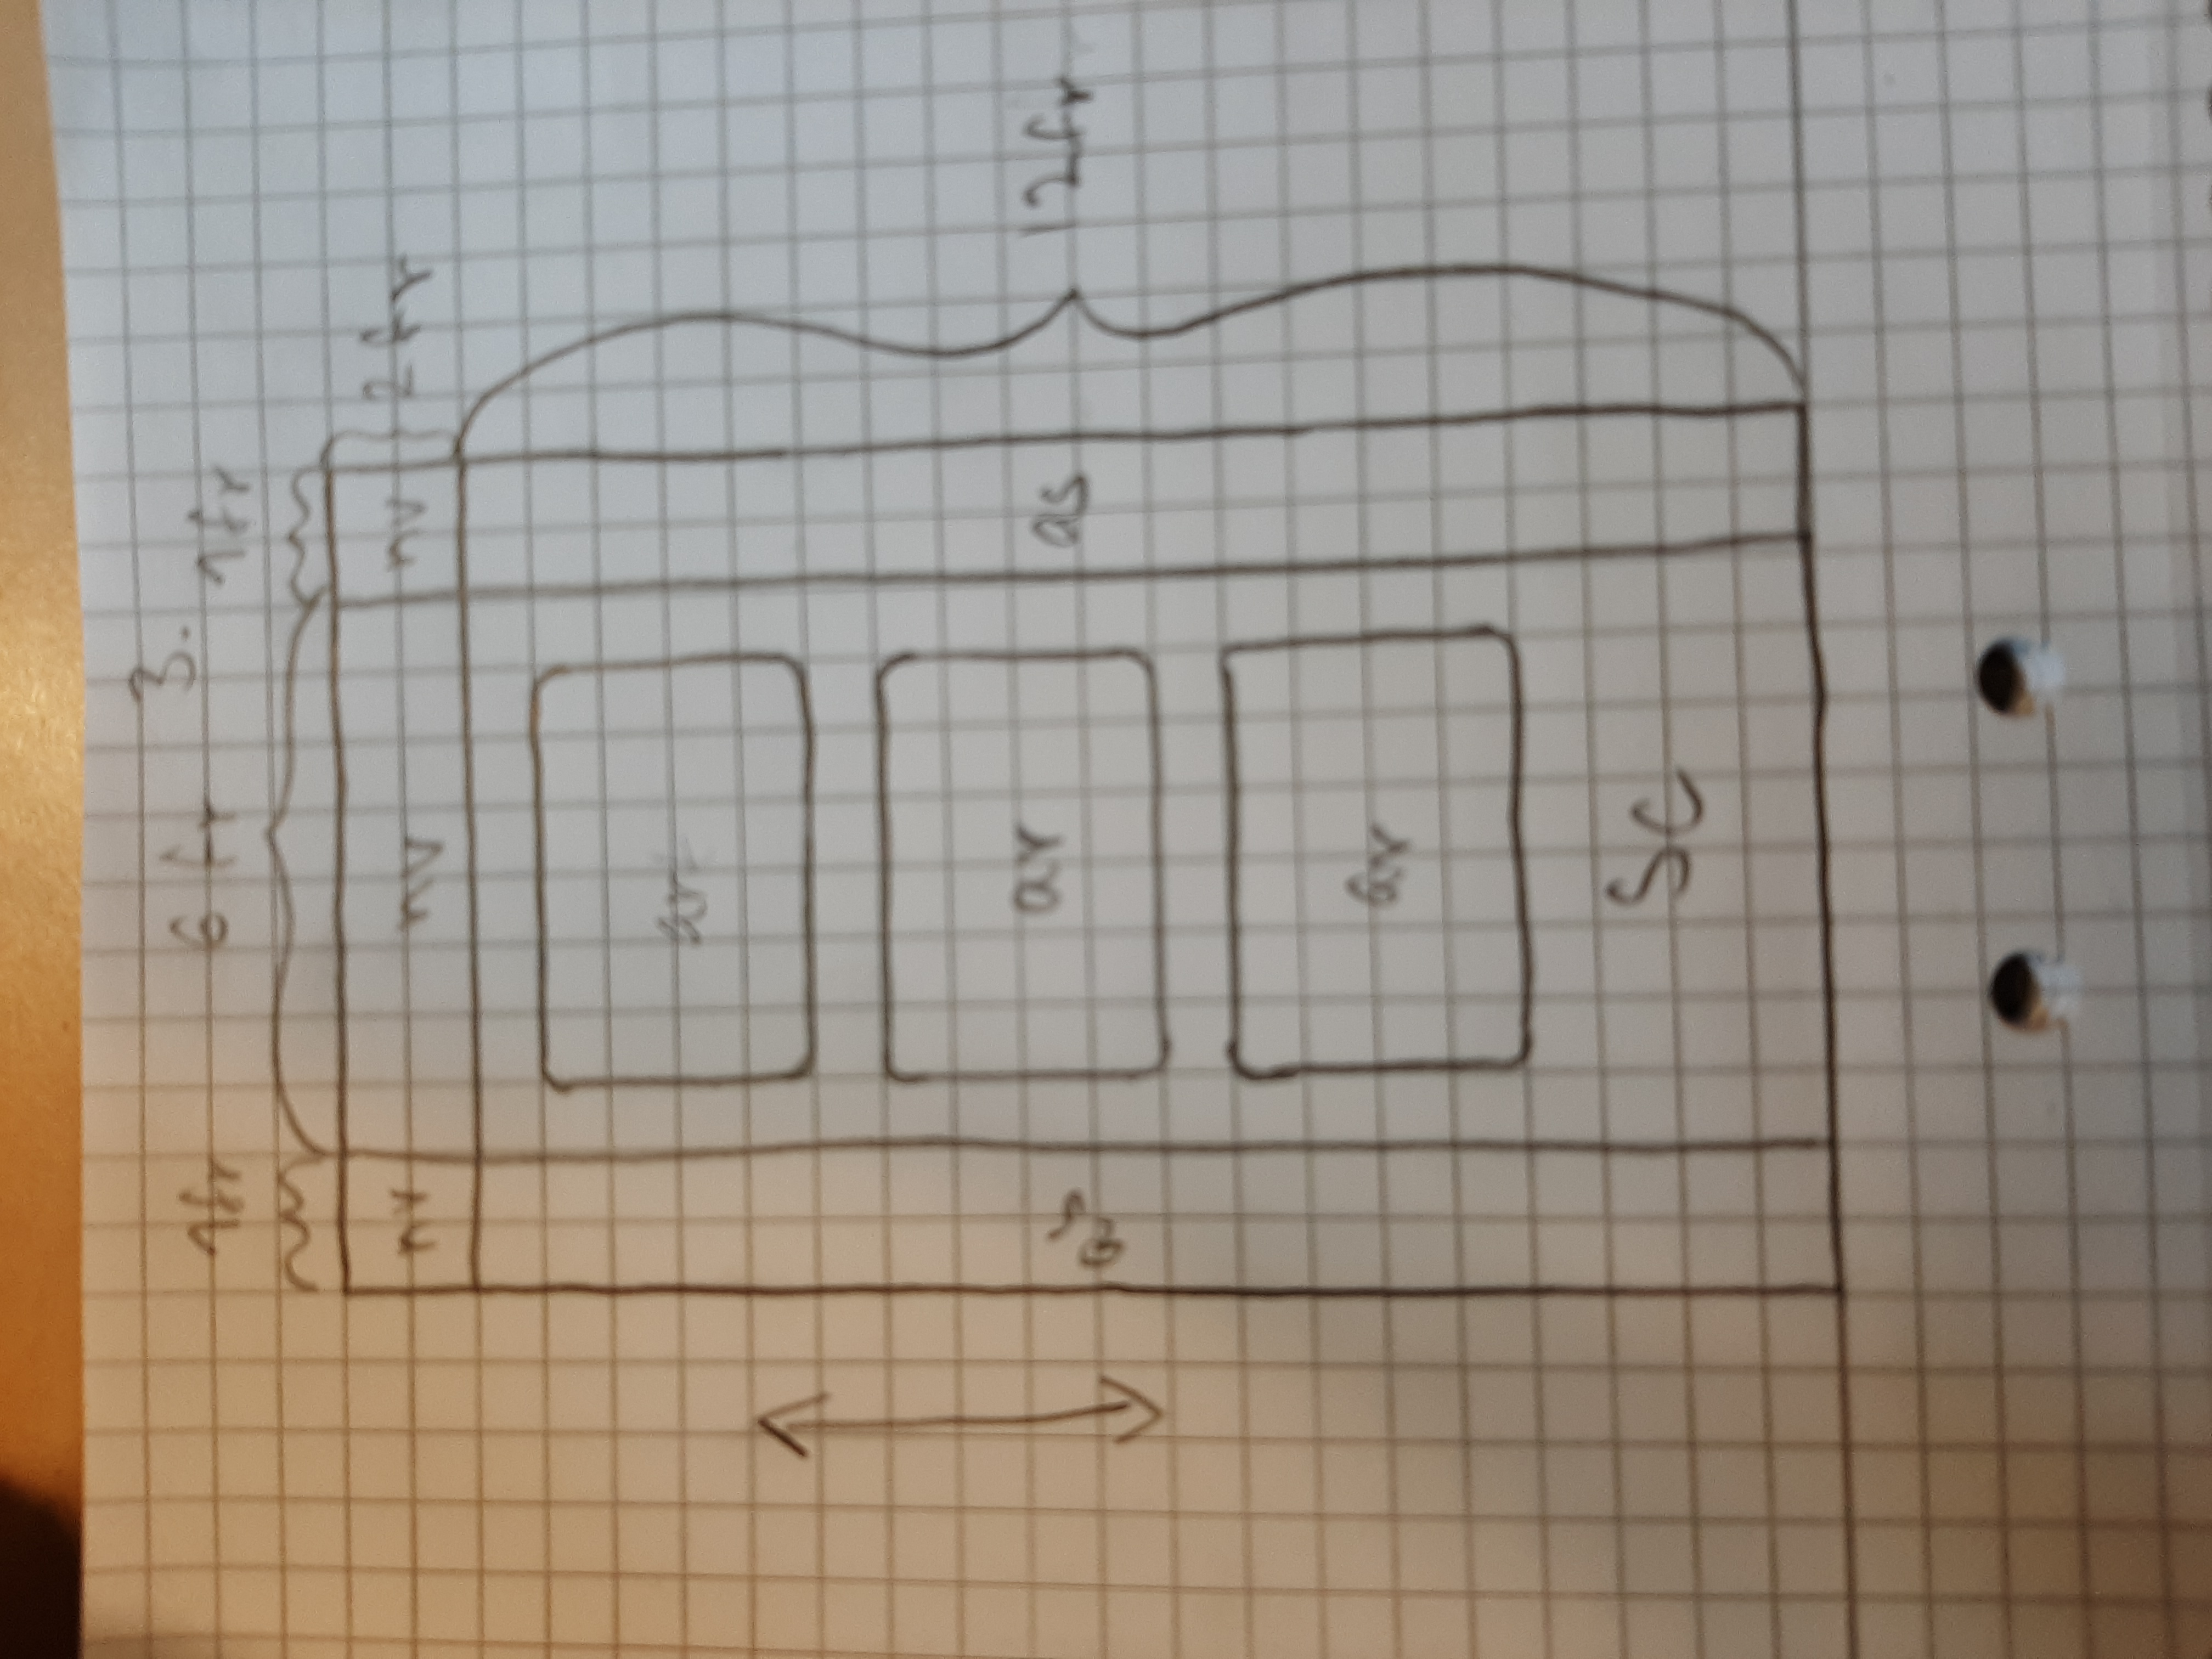 3.
1fr 6 fr 1fr
nv nv nv 2fr
ar
ar
as as 12fr
ar
Sc